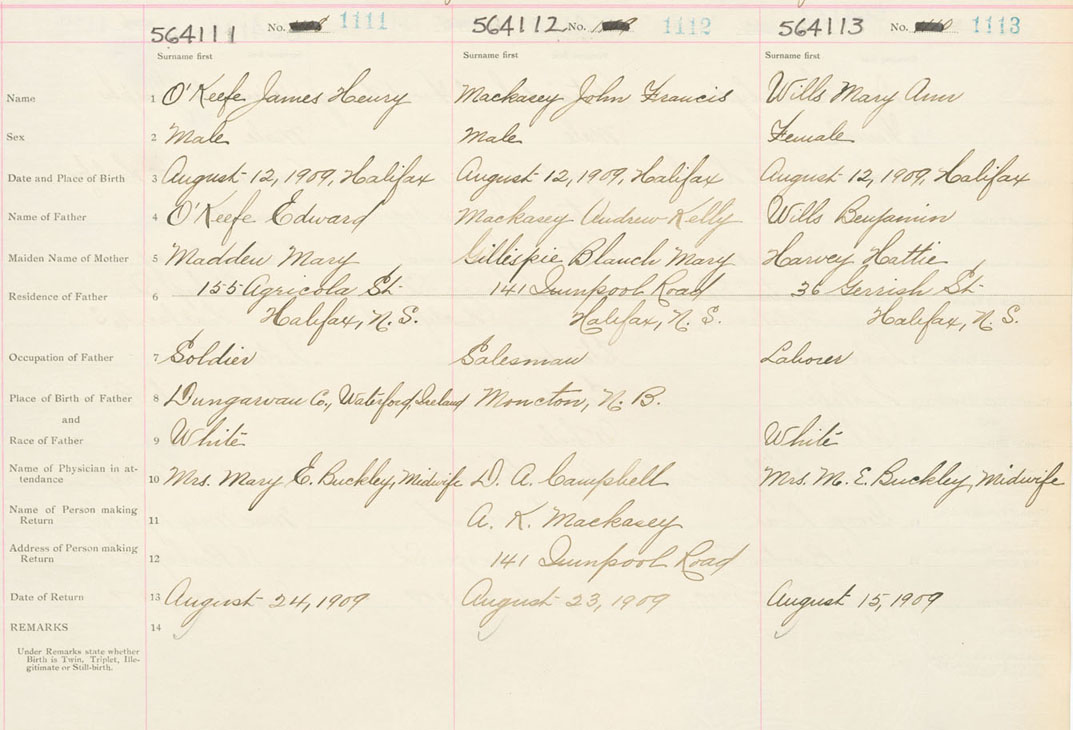 564111 No. 1111 564112 No. 1112 564113 No. 1113
Surname first Surname first Surname first
Name 1 O'Keefe James Henry Mackasey John Francis Wills Mary Ann
Sex 2 Male Male Female
Date and Place of Birth 3 August 12, 1909, Halifax August 12, 1909, Halifax August 12, 1909, Halifax
Name of Father 4 O'Keefe Edward Mackasey Andrew Kelly Wills Benjamin
Maiden Name of Mother 5 Madden Mary Gillespie Blanch Mary Harvey Hattie
Residence of Father 6 155 Agricola St. 141 Quinpool Road 36 Gerrish St.
Halifax, N. S. Halifax, N. S. Halifax, N. S.
Occupation of Father 7 Soldier Salesman Laborer
Place of Birth of Father 8 Dungarvan Co., Waterford, Ireland Moncton, N. B.
and
Race of Father 9 White White
Name of Physician in at-
tendance 10 Mrs. Mary E. Buckley, Midwife D. A. Campbell Mrs. M. E. Buckley, Midwife
Name of Person making
Return 11 A. K. Mackasey
Address of Person making
Return 12 141 Quinpool Road
Date of Return 13 August 24, 1909 August 23, 1909 August 15, 1909
REMARKS 14
Under Remarks state whether
Birth is Twin, Triplet, Ille-
gitimate or Still-birth.